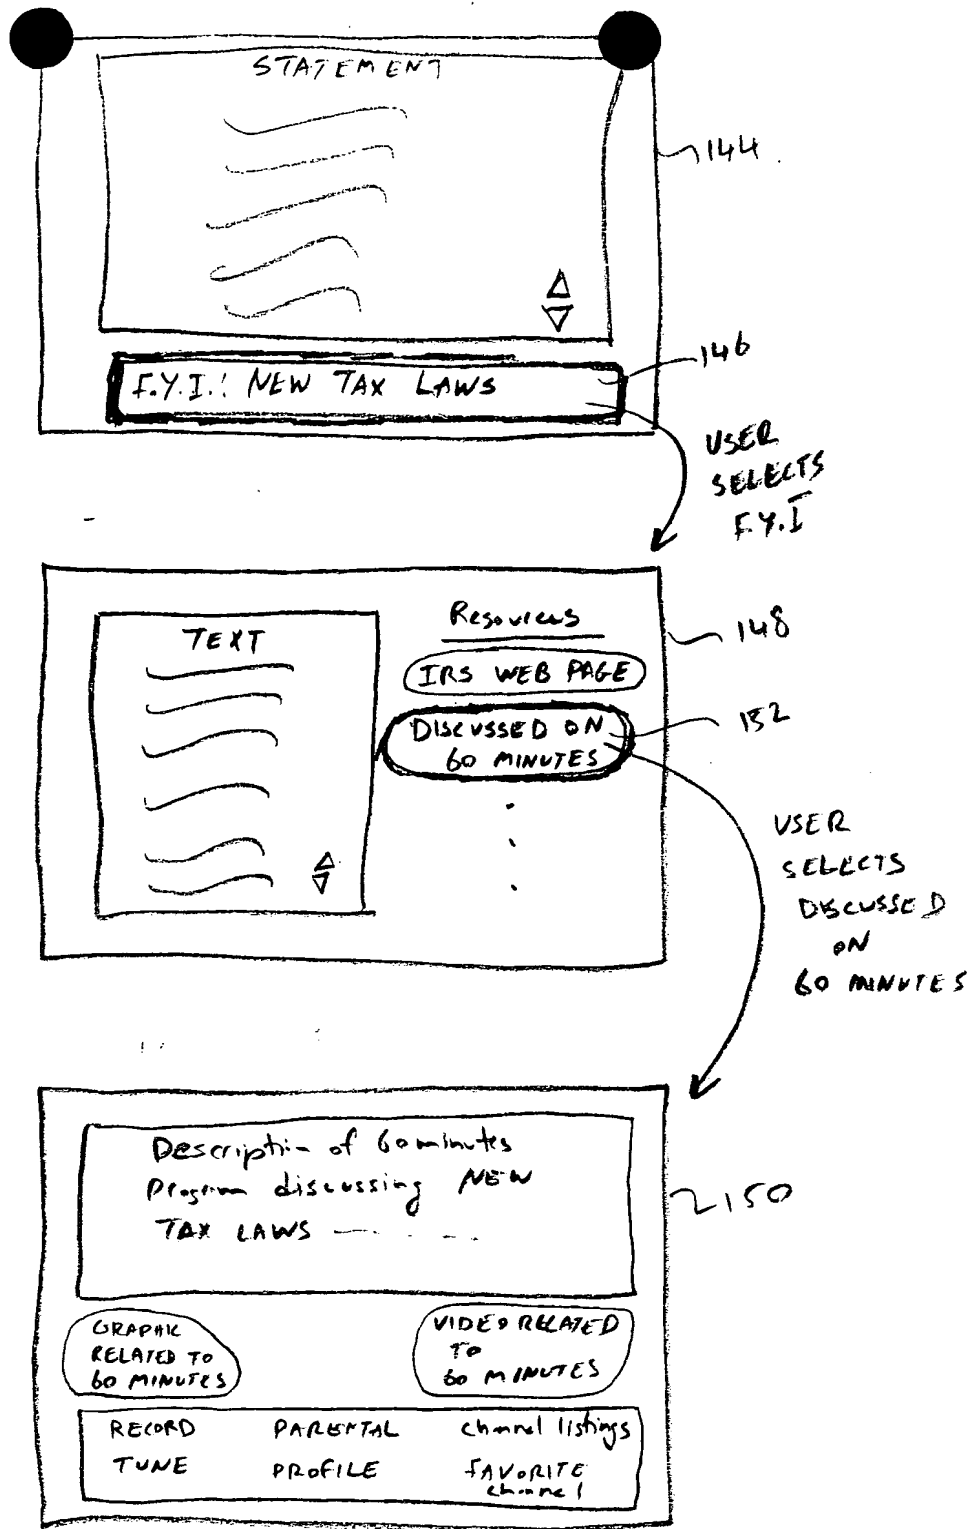 STATEMENT
144
F.Y.I.: NEW TAX LAWS
146
USER
SELECTS
F.Y.I
TEXT
Resources
IRS WEB PAGE
DISCUSSED ON
60 MINUTES
148
152
USER
SELECTS
DISCUSSED
ON
60 MINUTES
Description of 60 minutes
Program discussing NEW
TAX LAWS
150
GRAPHIC
RELATED TO
60 MINUTES
VIDEO RELATED
TO
60 MINUTES
RECORD PARENTAL channel listings
TUNE PROFILE FAVORITE
channel